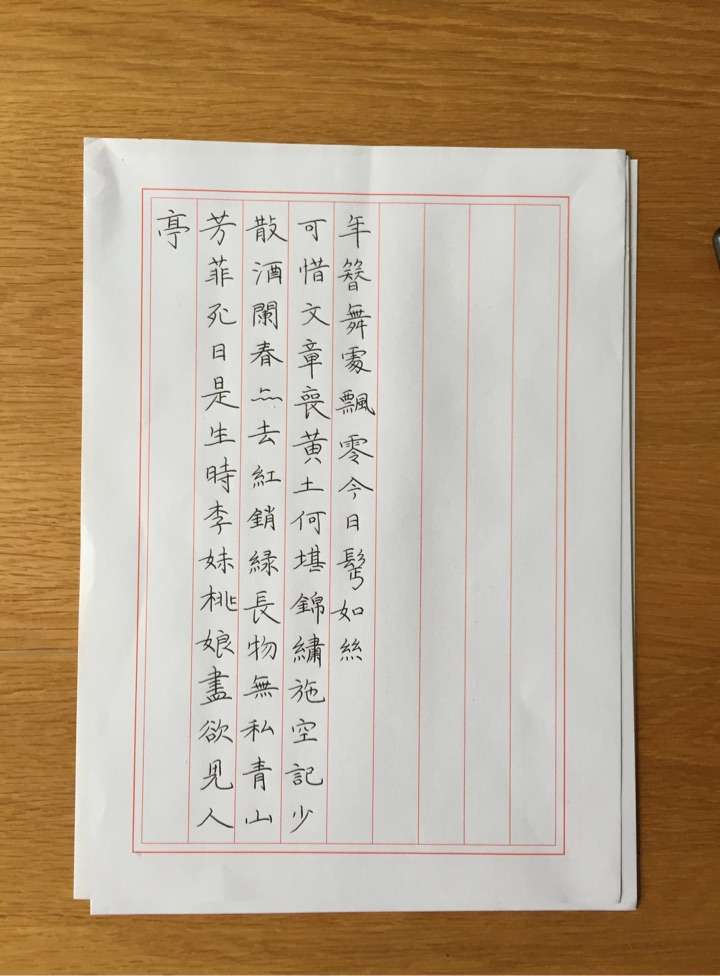 亭
芳菲死日是生時李妹桃娘盡欲兒人
散酒闌春亦去紅銷綠長物無私青山
可惜文章喪黃土何堪錦繡施空記少
年簪舞處飄零今日鬢如絲